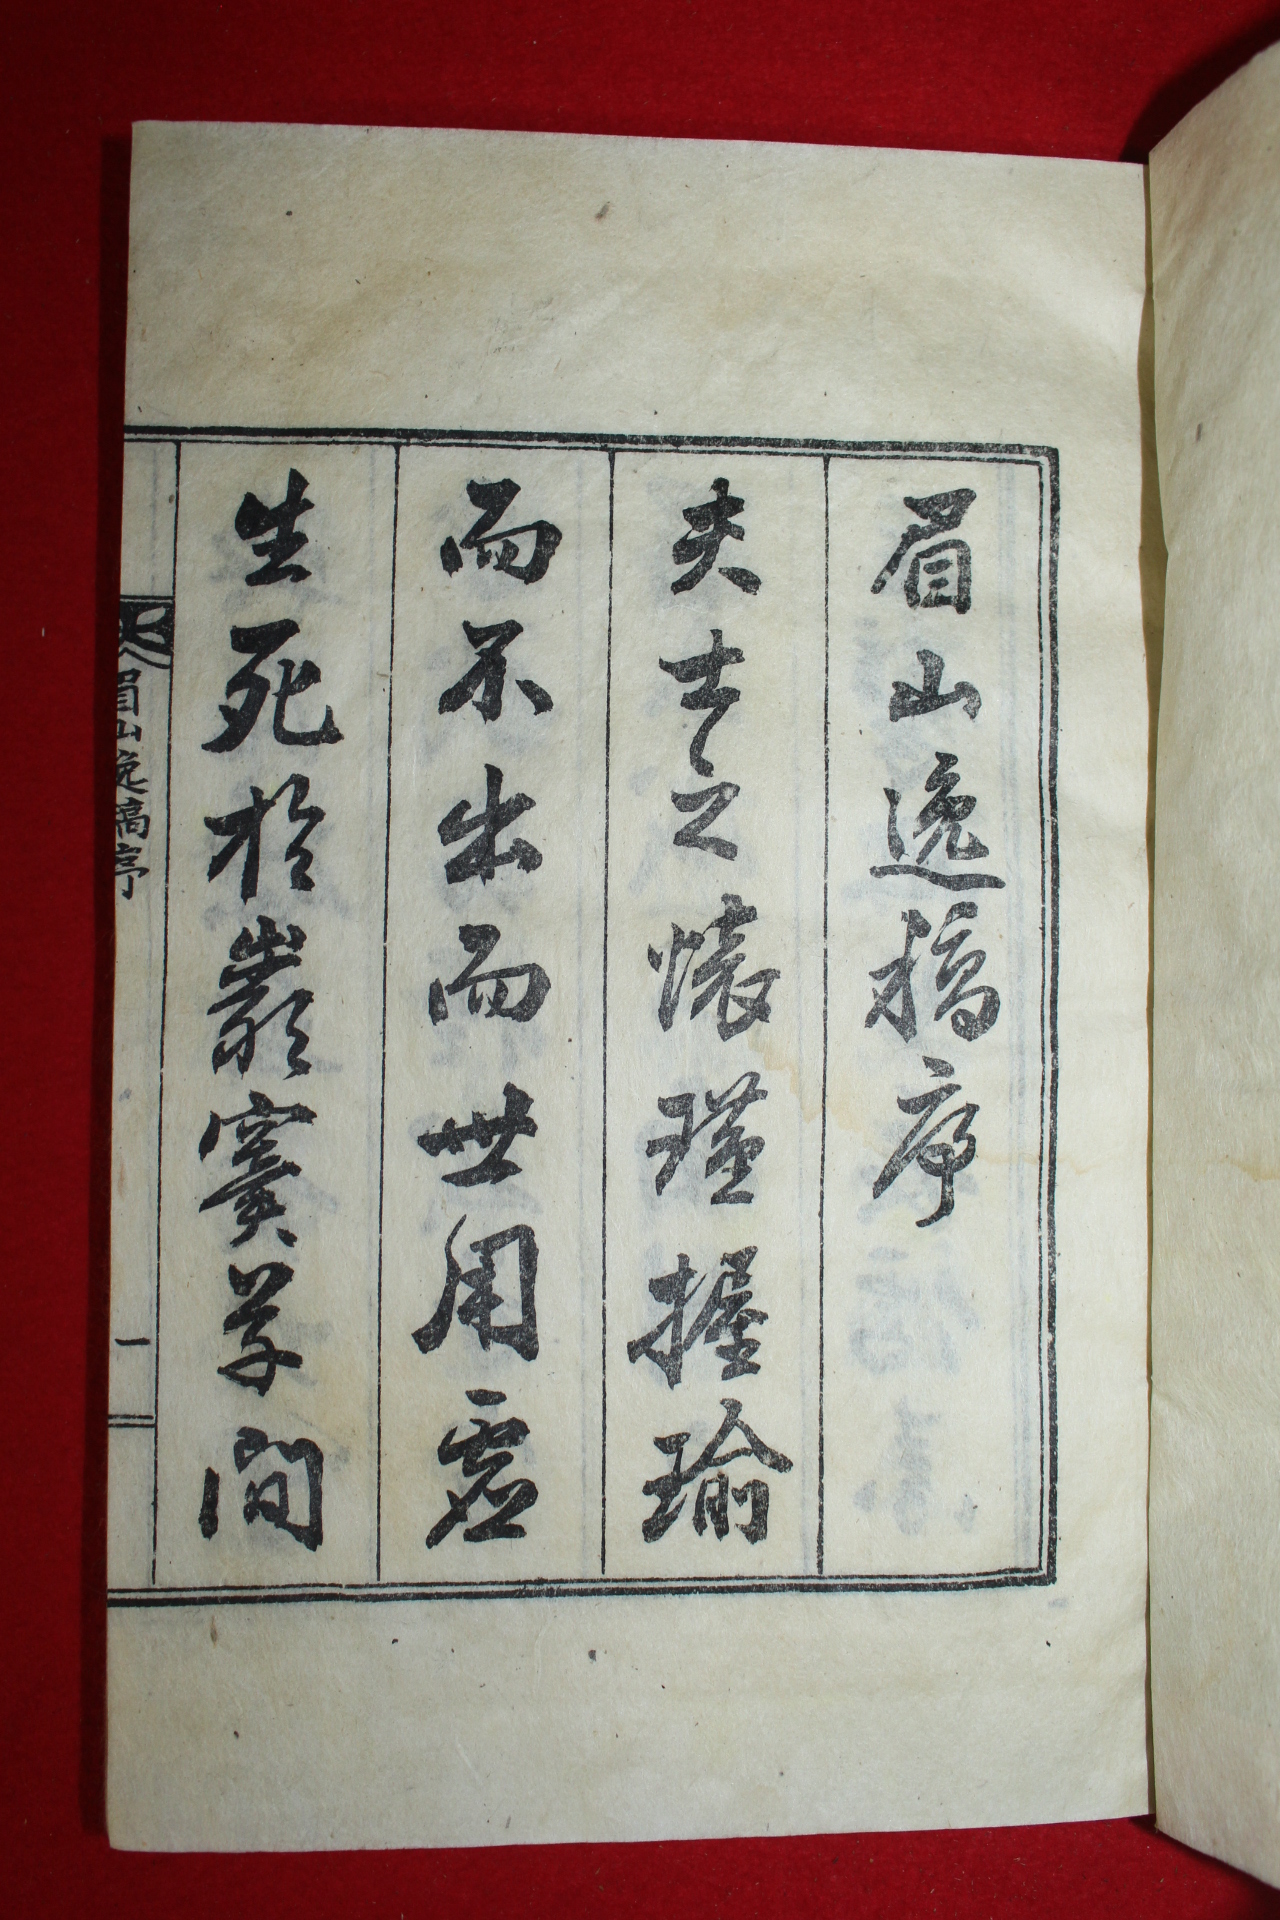 眉山逸稿序
夫士之懷瑾握瑜
而不出而世用虛
生死於巖竇草間
眉山逸稿序
一